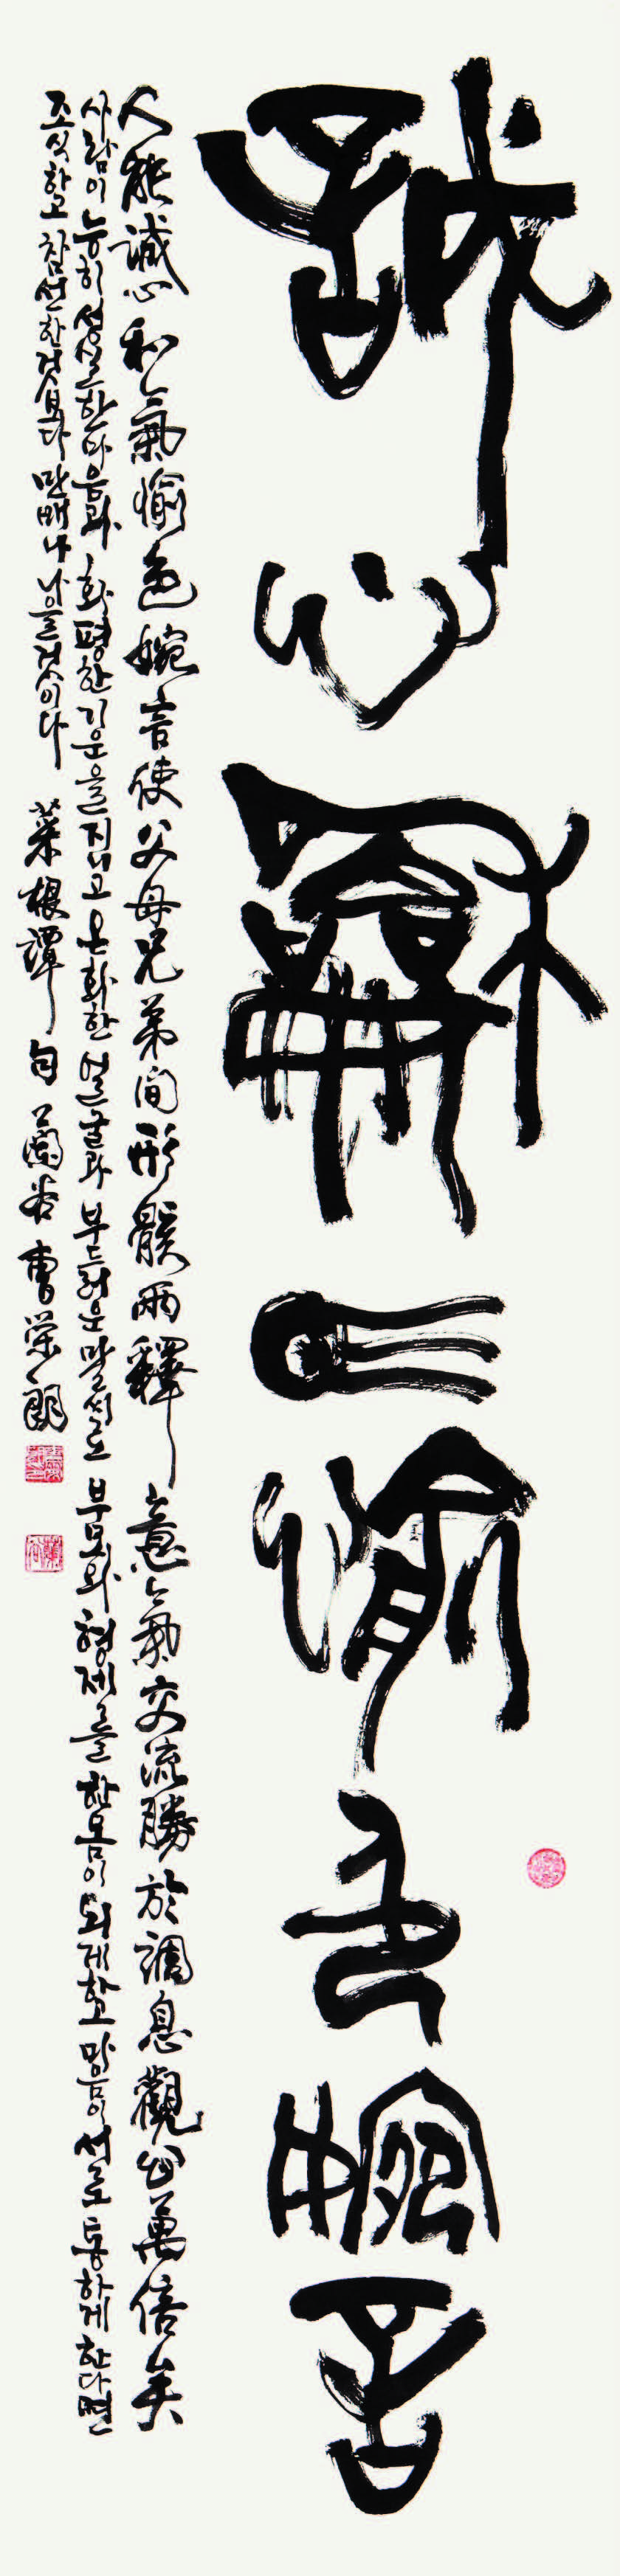 誠心龢气愉色婉言
人能誠心和氣愉色婉言使父母兄弟間形骸兩釋意氣交流勝於調息觀心萬倍矣
사람이 능히 성실한 마음과 화평한 기운을 지니고 온화한 얼굴과 부드러운 말씨로 부모와 형제를 한몸이 되게하고 마음이 서로 통하게 한다면
조식하고 참선한 것보다 만배나 나을 것이다 菜根譚 句 蘭谷 曹榮朗